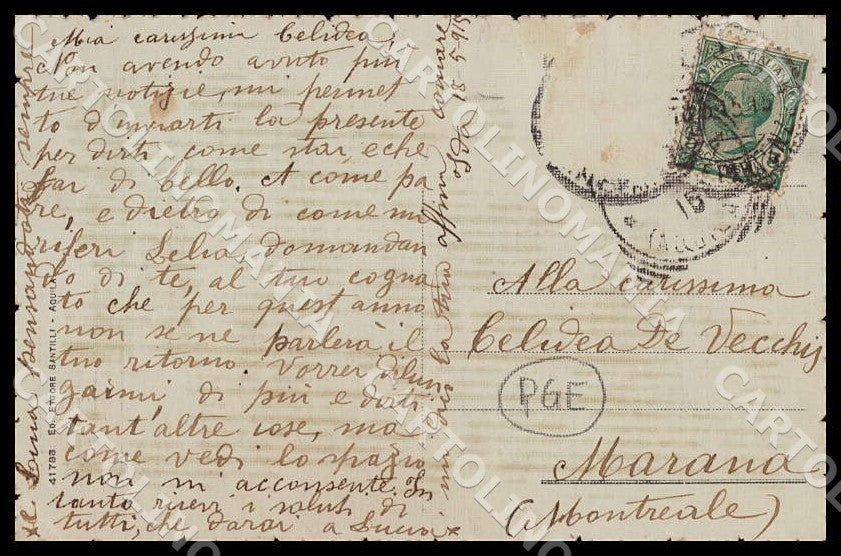 Mia carissima Celidea,
Non avendo avuto più
tue notizie, mi permet
to d'inviarti la presente
per dirti come stai e che
fai di bello. A come pa
re, e dietro di come mi
riferì Lelia, domandan
do di te, al tuo cogna
to che per quest'anno
non se ne parlerà il
tuo ritorno. Vorrei dilun
garmi, di più e dirti
tant'altre cose, ma
come vedi lo spazio
non mi acconsente. In
tanto ricevi i saluti di
tutti, che darai a
pensandoti sempre
la tua affma
18-5-915
41783 ED. ETTORE SANTILLI - AQUILA
POSTE ITALIANE
15
Alla carissima
Celidea De Vecchis
PGE
Marana
(Montreale)
CARTOLINOMANIA